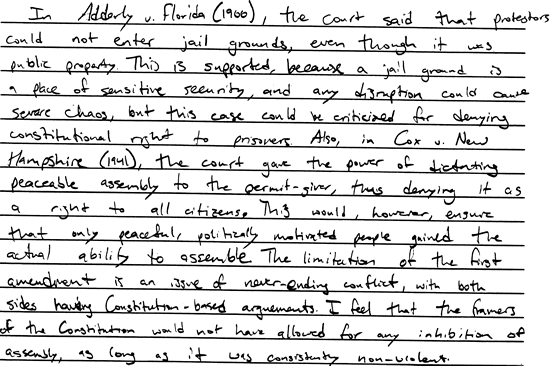 In Adderly v. Florida (1966), the court said that protestors
could not enter jail grounds, even though it was
public property. This is supported, because a jail ground is
a place of sensitive security, and any disruption could cause
severe chaos, but this case could be criticized for denying
constitutional right to prisoners. Also, in Cox v. New
Hampshire (1941), the court gave the power of dictating
peaceable assembly to the permit-giver, thus denying it as
a right to all citizens. This would, however, ensure
that only peaceful, politically motivated people gained the
actual ability to assemble. The limitation of the first
amendment is an issue of never-ending conflict, with both
sides having Constitution-based arguements. I feel that the framers
of the Constitution would not have allowed for any inhibition of
assembly, as long as it was consistently non-violent.